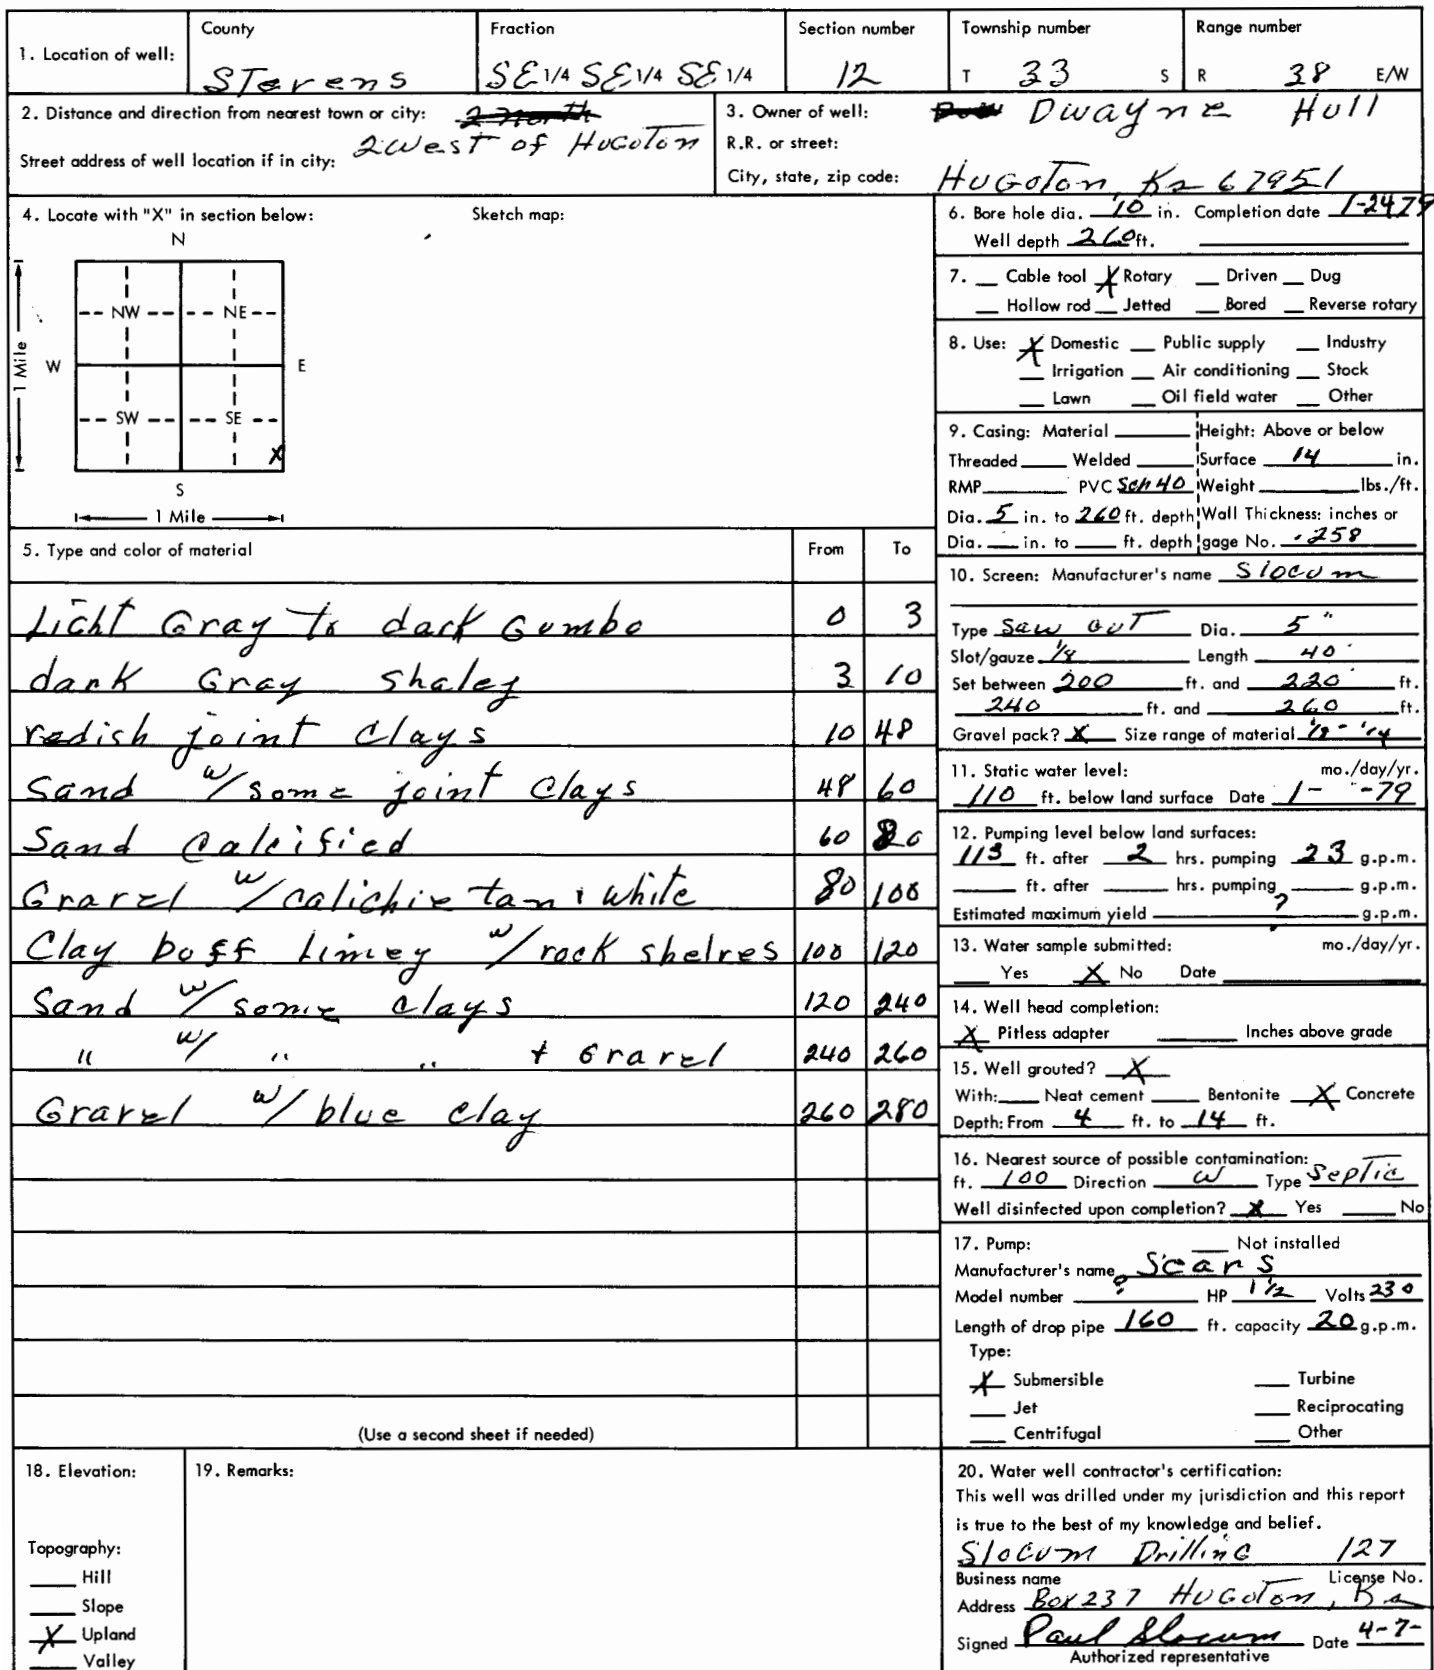 1. Location of well:
County
STevens
Fraction
SE 1/4 SE 1/4 SE 1/4
Section number
12
Township number
T 33 S
Range number
R 38 E/W
2. Distance and direction from nearest town or city: 2 north
2 West of HuGoTon
Street address of well location if in city:
3. Owner of well: Dwayne Hull
R.R. or street:
City, state, zip code: HuGoTon, Ks 67951
4. Locate with "X" in section below:
Sketch map:
N
NW NE
W E
SW SE
X
S
1 Mile
1 Mile
5. Type and color of material From To
Licht Gray To dark Gumbo 0 3
dark Gray shaley 3 10
redish joint Clays 10 48
Sand w/some joint Clays 48 60
Sand Calcified 60 80
Gravel w/calichie tan + white 80 100
Clay buff Limey w/rock shelves 100 120
Sand w/some clays 120 240
" w/ " " + Gravel 240 260
Gravel w/blue clay 260 280
(Use a second sheet if needed)
6. Bore hole dia. 10 in. Completion date 1-24-79
Well depth 260 ft.
7. Cable tool X Rotary Driven Dug
Hollow rod Jetted Bored Reverse rotary
8. Use: X Domestic Public supply Industry
Irrigation Air conditioning Stock
Lawn Oil field water Other
9. Casing: Material Height: Above or below
Threaded Welded Surface 14 in.
RMP PVC Sch 40 Weight lbs./ft.
Dia. 5 in. to 260 ft. depth Wall Thickness: inches or
Dia. in. to ft. depth gage No. .258
10. Screen: Manufacturer's name Slocum
Type Saw cuT Dia. 5"
Slot/gauze 1/8 Length 40'
Set between 200 ft. and 220 ft.
240 ft. and 260 ft.
Gravel pack? X Size range of material 1/8 - 1/4
11. Static water level: mo./day/yr.
110 ft. below land surface Date 1- -79
12. Pumping level below land surfaces:
113 ft. after 2 hrs. pumping 23 g.p.m.
ft. after hrs. pumping g.p.m.
Estimated maximum yield ? g.p.m.
13. Water sample submitted: mo./day/yr.
Yes X No Date
14. Well head completion:
X Pitless adapter Inches above grade
15. Well grouted? X
With: Neat cement Bentonite X Concrete
Depth: From 4 ft. to 14 ft.
16. Nearest source of possible contamination:
ft. 100 Direction W Type SepTic
Well disinfected upon completion? X Yes No
17. Pump: Not installed
Manufacturer's name Sears
Model number ? HP 1 1/2 Volts 230
Length of drop pipe 160 ft. capacity 20 g.p.m.
Type:
X Submersible Turbine
Jet Reciprocating
Centrifugal Other
18. Elevation:
Topography:
Hill
Slope
X Upland
Valley
19. Remarks:
20. Water well contractor's certification:
This well was drilled under my jurisdiction and this report
is true to the best of my knowledge and belief.
Slocum Drilling 127
Business name License No.
Address Box 237 HuGoTon, Ks
Signed Paul Slocum Date 4-7-
Authorized representative